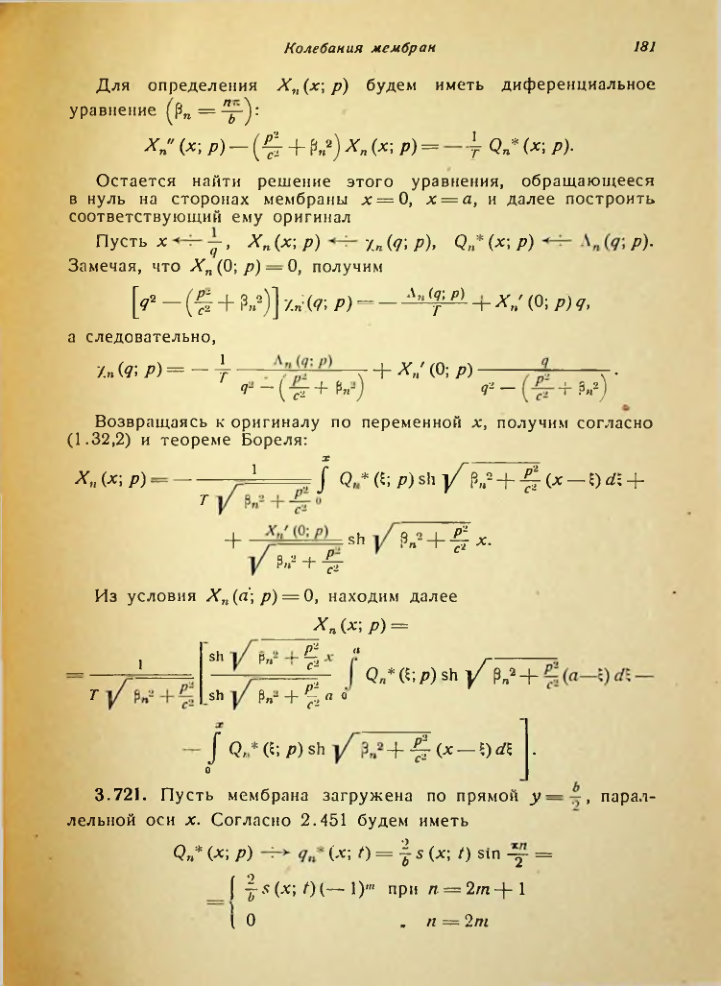 Колебания мембран 181
Для определения Xₙ(x; p) будем иметь диференциальное
уравнение (βₙ = nπ/b):
Xₙ″(x; p) — (p²/c² + βₙ²) Xₙ(x; p) = — 1/T Qₙ*(x; p).
Остается найти решение этого уравнения, обращающееся
в нуль на сторонах мембраны x = 0, x = a, и далее построить
соответствующий ему оригинал
Пусть x ←∸ 1/q, Xₙ(x; p) ←∸ χₙ(q; p), Qₙ*(x; p) ←∸ Λₙ(q; p).
Замечая, что Xₙ(0; p) = 0, получим
[q² — (p²/c² + βₙ²)] χₙ(q; p) = — Λₙ(q; p)/T + Xₙ′(0; p) q,
а следовательно,
χₙ(q; p) = — 1/T Λₙ(q; p)/(q² — (p²/c² + βₙ²)) + Xₙ′(0; p) q/(q² — (p²/c² + βₙ²)).
Возвращаясь к оригиналу по переменной x, получим согласно
(1.32,2) и теореме Бореля:
Xₙ(x; p) = — 1/(T√(βₙ² + p²/c²)) ∫₀ˣ Qₙ*(ξ; p) sh √(βₙ² + p²/c²) (x — ξ) dξ +
+ Xₙ′(0; p)/√(βₙ² + p²/c²) sh √(βₙ² + p²/c²) x.
Из условия Xₙ(a; p) = 0, находим далее
Xₙ(x; p) =
= 1/(T√(βₙ² + p²/c²)) [ sh √(βₙ² + p²/c²) x / sh √(βₙ² + p²/c²) a ∫₀ᵃ Qₙ*(ξ; p) sh √(βₙ² + p²/c²) (a—ξ) dξ —
— ∫₀ˣ Qₙ*(ξ; p) sh √(βₙ² + p²/c²) (x — ξ) dξ ].
3.721. Пусть мембрана загружена по прямой y = b/2, парал-
лельной оси x. Согласно 2.451 будем иметь
Qₙ*(x; p) ∸→ qₙ*(x; t) = 2/b s(x; t) sin πn/2 =
= { 2/b s(x; t)(— 1)ᵐ при n = 2m + 1
0 „ n = 2m